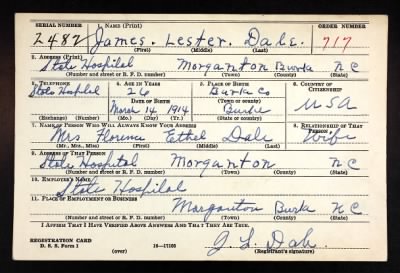 SERIAL NUMBER 1. NAME (Print) ORDER NUMBER
2482 James. Lester. Dale. 717
(First) (Middle) (Last)
2. ADDRESS (Print)
State Hospital Morganton Burke N C
(Number and street or R. F. D. number) (Town) (County) (State)
3. TELEPHONE 4. AGE IN YEARS 5. PLACE OF BIRTH 6. COUNTRY OF CITIZENSHIP
State Hospital 26 Burke Co
DATE OF BIRTH (Town or county)
March 14 1914 Burke USA
(Exchange) (Number) (Mo.) (Day) (Yr.) (State or country)
7. NAME OF PERSON WHO WILL ALWAYS KNOW YOUR ADDRESS 8. RELATIONSHIP OF THAT PERSON
Mrs Florence Ethel Dale Wife
(Mr., Mrs., Miss) (First) (Middle) (Last)
9. ADDRESS OF THAT PERSON
State Hospital Morganton N C
(Number and street or R. F. D. number) (Town) (County) (State)
10. EMPLOYER'S NAME
State Hospital
11. PLACE OF EMPLOYMENT OR BUSINESS
Morganton Burke N C
(Number and street or R. F. D. number) (Town) (County) (State)
I AFFIRM THAT I HAVE VERIFIED ABOVE ANSWERS AND THAT THEY ARE TRUE.
REGISTRATION CARD
D. S. S. Form 1 16—17105 J. L. Dale
(over) (Registrant's signature)